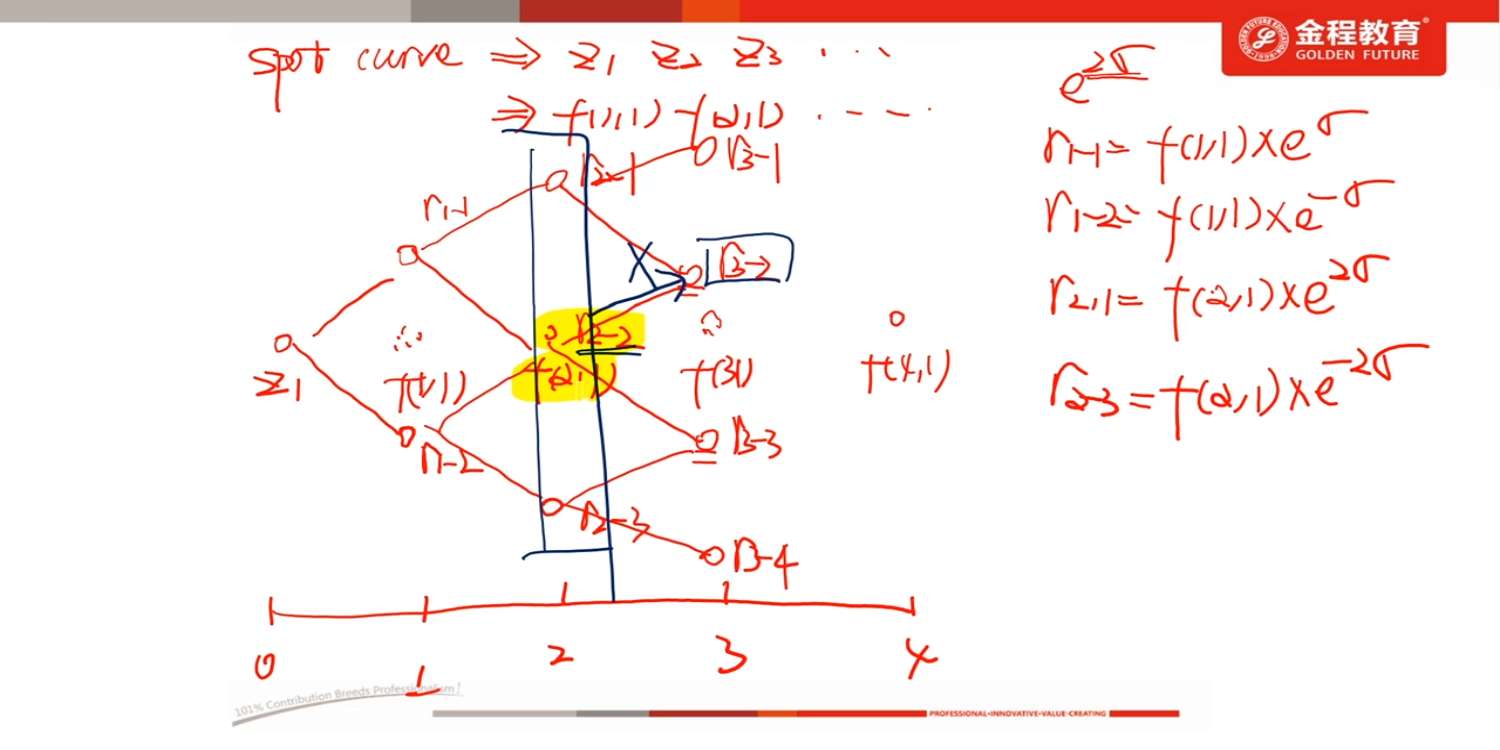 金程教育
GOLDEN FUTURE
spot curve ⇒ Z1 Z2 Z3 ...
⇒ f(1,1) f(2,1) ....
e^2σ
r1-1 = f(1,1)×e^σ
r1-2 = f(1,1)×e^-σ
r2,1 = f(2,1)×e^2σ
r2-3 = f(2,1)×e^-2σ
r2-1
r3-1
r1-1
X
r3-2
r2-2
Z1
f(1,1)
f(2,1)
f(3,1)
f(4,1)
r1-2
r3-3
r2-3
r3-4
0 1 2 3 4
101% Contribution Breeds Professionalism!
PROFESSIONAL•INNOVATIVE•VALUE-CREATING